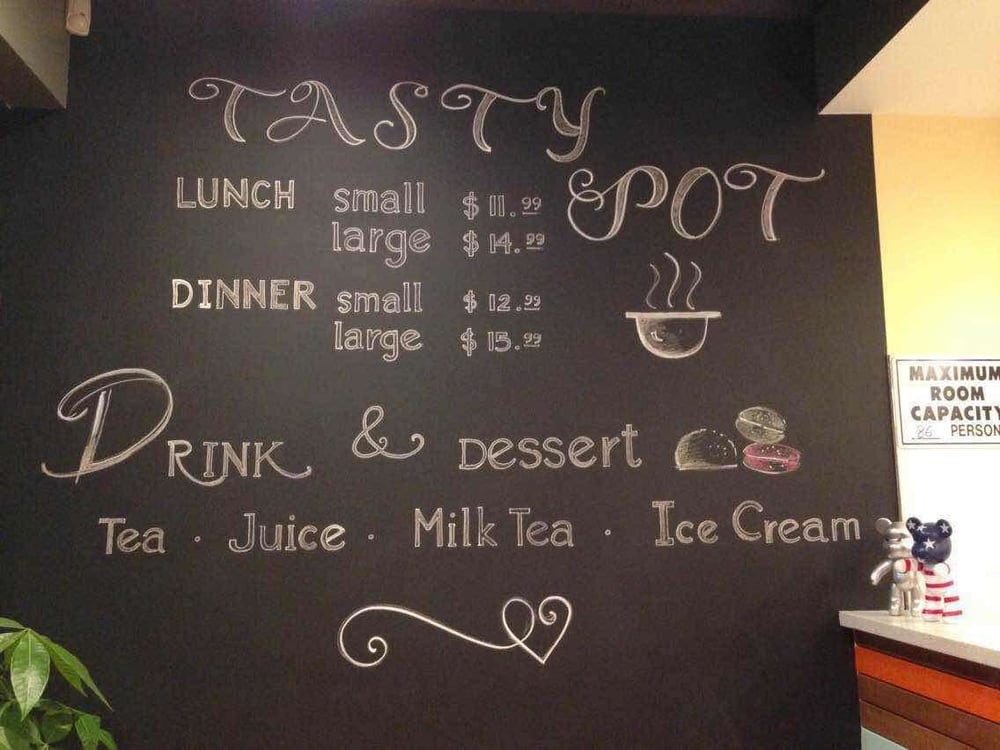 TASTY
POT
LUNCH small $11.99
large $14.99
DINNER small $12.99
large $15.99
DRINK & Dessert
Tea · Juice · Milk Tea · Ice Cream
MAXIMUM
ROOM
CAPACITY
86 PERSON